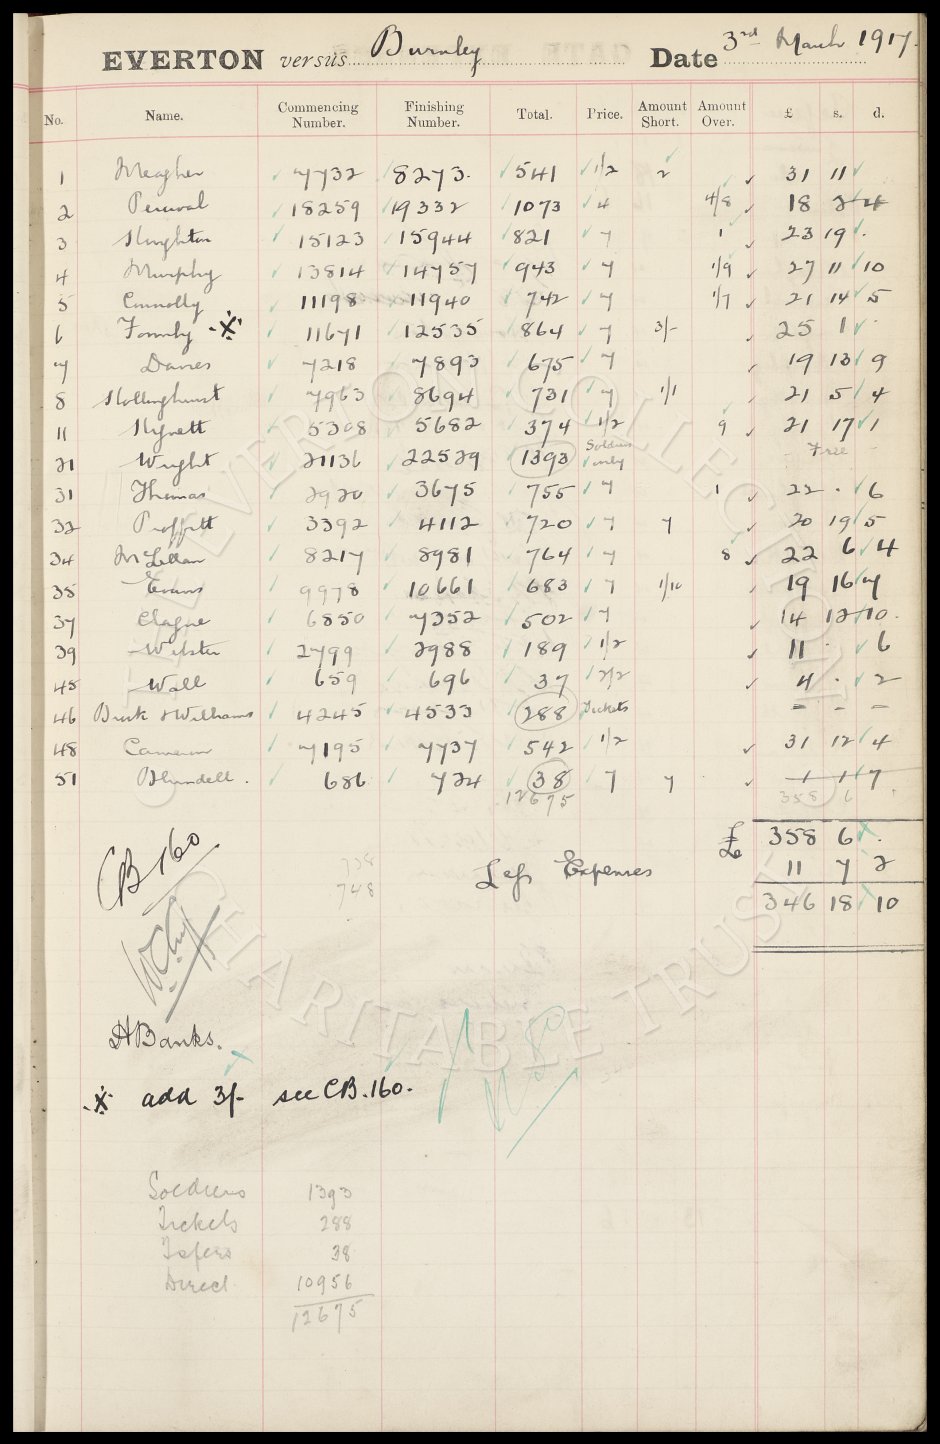 EVERTON versus Burnley Date 3rd March 1917.
No. Name. Commencing Number. Finishing Number. Total. Price. Amount Short. Amount Over. £ s. d.
1 Meagher 7732 8273. 541 1/2 2 31 11
2 Percival 18259 19332 1073 4 4/8 18 2 4
3 Hughton 15123 15944 821 7 1 23 19 .
4 Murphy 13814 14757 943 7 1/9 27 11 10
5 Connolly 11198 11940 742 7 1/7 21 14 5
6 Formby ※ 11671 12535 864 7 3/- 25 1 .
7 Davies 7218 7893 675 7 19 13 9
8 Hollinghurst 7963 8694 731 7 1/1 21 5 4
11 Hignett 5308 5682 374 1/2 9 21 17 1
21 Wright 21136 22529 1393 Soldiers only Free -
31 Thomas 2920 3675 755 7 1 22 . 6
32 Proffitt 3392 4112 720 7 7 20 19 5
34 McLellan 8217 8981 764 7 8 22 6 4
35 Evans 9978 10661 683 7 1/10 19 16 7
37 Clague 6850 7352 502 7 14 12 10.
39 Webster 2799 2988 189 1/2 11 . 6
45 Wall 659 696 37 2/2 4 . 2
46 Burk & Williams 4245 4533 288 Tickets - - -
48 Cameron 7195 7737 542 1/2 31 12 4
51 Blundell. 686 724 38 7 7 1 1 7
12675 358 6
£ 358 6 .
CB 160
738
Less Expenses 11 7 2
748
346 18 10
H Banks.
※ add 3/- see CB. 160.
Soldiers 1393
Tickets 288
Tsfers 38
Direct 10956
12675
EVERTON COLLECTION
CHARITABLE TRUST